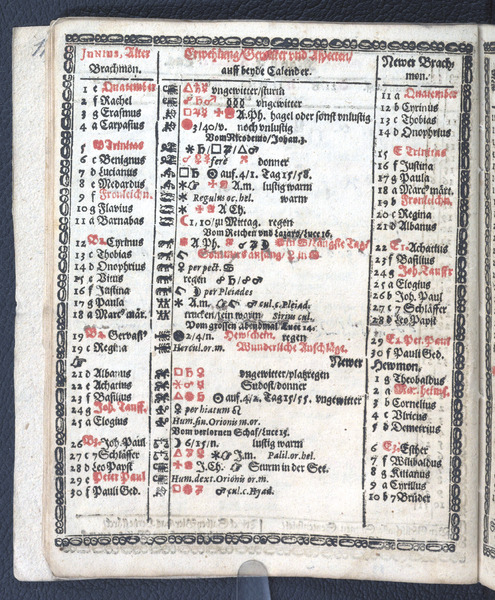 JUNIUS, Alter
Brachmon.
1 e Quatember
2 f Rachel
3 g Erasmus
4 a Carpasius
5 Trinitas
6 c Benignus
7 d Lucianus
8 e Medardus
9 f Fronleichn.
10 g Flavius
11 a Barnabas
12 Cyrinus
13 c Thobias
14 d Onophrius
15 e Vitus
16 f Justina
17 g Paula
18 a Marc9 mär.
19 Gervas9
20 c Regina
21 d Albanus
22 e Achatius
23 f Basilius
24 g Joh. Tauff.
25 a Elogius
26 Joh. Paul
27 c 7 Schläffer
28 d Leo Papst
29 e Peter Paul
30 f Pauli Ged.
Erwehlung/Gewitter und Aspecten/
auff beyde Calender.
vngewitter/sturm
vngewitter
A.Ph. hagel oder sonst vnlustig
3/40/v. noch vnlustig
Vom Nicodemo/Johan.3.
feré donner
auf.4/1. Tag 15/58.
A.m. lustig warm
Regulus oc. hel. warm
A Ch.
1.10/zu Mittag. regen
Vom Reichen vnd Lazaro/Luce 16.
A Ph.
Sommers anfang/
per pect.
regen
per Pleiades
A.m. cul. c. Pleiad.
trucken/fein warm Sirius cul.
Vom grossen Abendmal Luce 14.
2/4/n. Hewschein. regen
Hercul. or. m. Wunderliche Anschläge.
Newer
vngewitter/platzregen
Sudost/donner
auf.4/2. Tag 15/55. vngewitter
per hiatum
Hum. sin. Orionis m. or.
Vom verlornen Schaf/Luce 15.
6/15/n. lustig warm
J.m. Palil. or. hel.
J.Ch. Sturm in der See.
Hum. dext. Orionis or. m.
cul. c. Hyad.
Newer Brach-
mon.
11 a Quatember
12 b Cyrinus
13 c Thobias
14 d Onophrius
15 E Trinitas
16 f Justina
17 g Paula
18 a Marc9 märt.
19 b Fronleichn.
20 c Regina
21 d Albanus
22 Achatius
23 f Basilius
24 g Joh. Tauff
25 a Elogius
26 b Joh. Paul
27 c 7 Schläffer
28 d Leo Papst
29 Pet. Paul
30 f Pauli Ged.
Hewmon.
1 g Theobaldus
2 a Mar. heims.
3 b Cornelius
4 c Ulricus
5 d Demetrius
6 Esther
7 f Wilibaldus
8 g Kilianus
9 a Cyrillus
10 b 7 Brüder